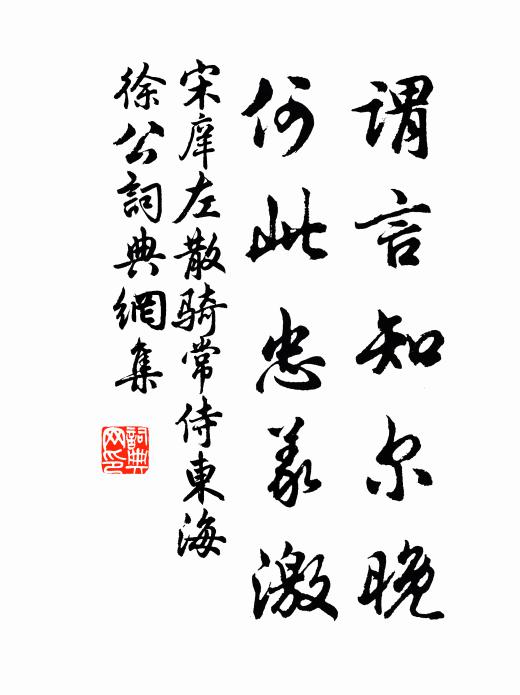 謂言知尔晚
何此忠義激
宋庠左散骑常侍東海
徐公詞典網集
詞典
网印